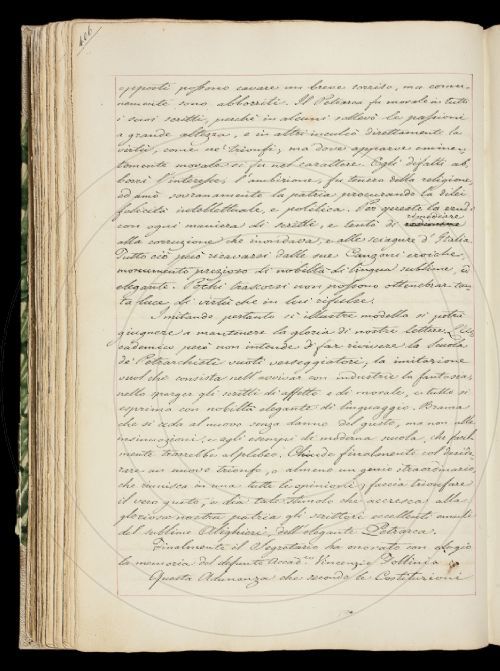 406
opposti possono cavare un breve sorriso, ma comu-
nemente sono abborriti. Il Petrarca fu morale in tutti
i suoi scritti, perchè in alcuni sollevò le passioni
a grande altezza, e in altri inculcò direttamente la
virtù, come ne' trionfi, ma dove apparve eminen-
temente morale si fu nel carattere. Egli difatti ab-
borrì l'interesse, l'ambizione, fu tenero della religione,
ed amò sovranamente la patria procurando la di lei
felicità intellettuale, e politica. Per questo la
con ogni maniera di scritti, e tentò di rimediare
alla corruzione che inondava, e alle sciagure d'Italia.
Tutto ciò può ricavarsi dalle sue Canzoni eroiche,
monumento prezioso di nobiltà di lingua sublime, ed
elegante. Pochi trascorsi non possono ottenebrar tan-
ta luce di virtù che in lui rifulse.
Imitando pertanto sì illustre modello si potrà
giugnere a mantenere la gloria di nostre lettere. L'Ac-
cademico però non intende di far rivivere la scuola
de' Petrarchisti vuoti verseggiatori, la imitazione
vuol che consista nell'avvivar con industrie la fantasia,
nello sparger gli scritti di affetto e di morale, e tutto si
esprima con nobiltà elegante di linguaggio. Brama
che si ceda al nuovo senza danno del gusto, ma non alle
insinuazioni, e agli esempi di moderna scuola, che facil-
mente trarrebbe al plebeo. Chiude finalmente col deside-
rare un nuovo trionfo, o almeno un genio straordinario
che riunisca in una tutte le opinioni, faccia trionfare
il vero gusto, e dia tale stimolo che accresca alla
gloriosa nostra patria gli scrittori eccellenti emuli
del sublime Alighieri, dell'elegante Petrarca.
Finalmente il Segretario ha onorato con elogio
la memoria del defunto Accad.co Vincenzio Follini
Questa Adunanza che secondo le Costituzioni